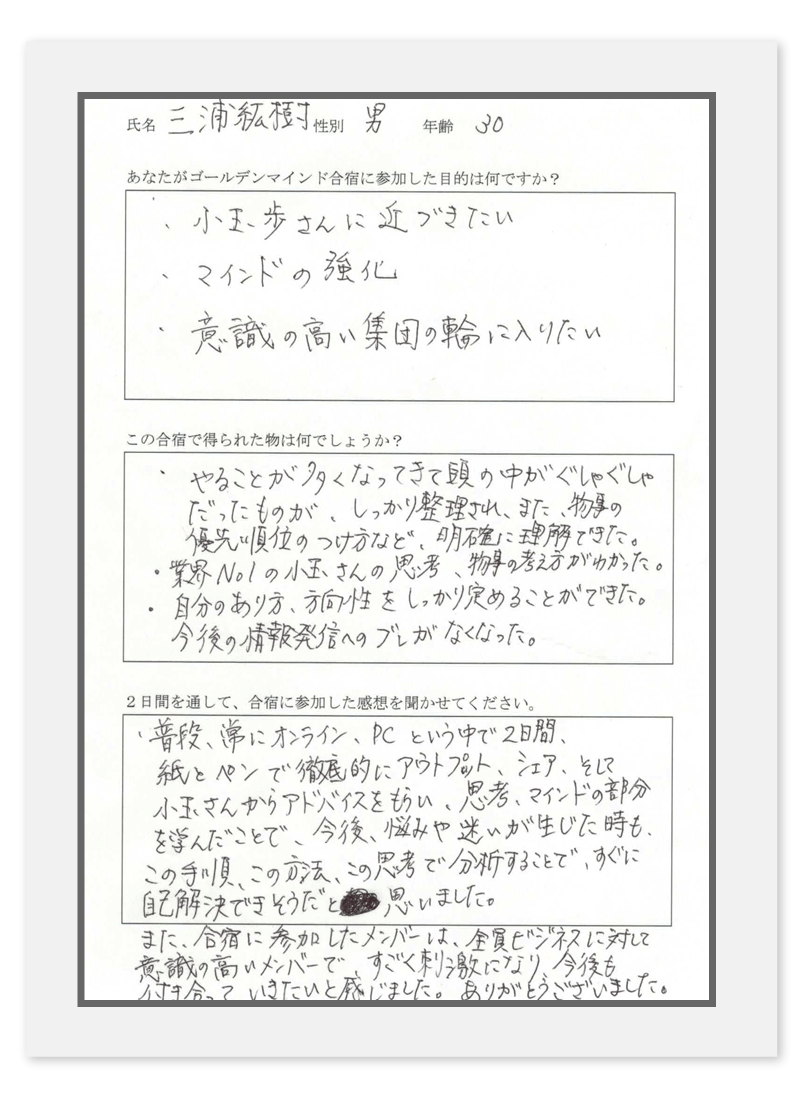 氏名 三浦紘樹 性別 男 年齢 30
あなたがゴールデンマインド合宿に参加した目的は何ですか？
・小玉歩さんに近づきたい
・マインドの強化
・意識の高い集団の輪に入りたい
この合宿で得られた物は何でしょうか？
・やることが多くなってきて頭の中がぐしゃぐしゃ
だったものが、しっかり整理され、また、物事の
優先順位のつけ方など、明確に理解できた。
・業界No1の小玉さんの思考、物事の考え方がわかった。
・自分のあり方、方向性をしっかり定めることができた。
今後の情報発信へのブレがなくなった。
２日間を通して、合宿に参加した感想を聞かせてください。
・普段、常にオンライン、PCという中で2日間、
紙とペンで徹底的にアウトプット、シェア、そして
小玉さんからアドバイスをもらい、思考、マインドの部分
を学んだことで、今後、悩みや迷いが生じた時も、
この手順、この方法、この思考で分析することで、すぐに
自己解決できそうだと思いました。
また、合宿に参加したメンバーは、全員ビジネスに対して
意識の高いメンバーで、すごく刺激になり、今後も
付き合っていきたいと感じました。ありがとうございました。